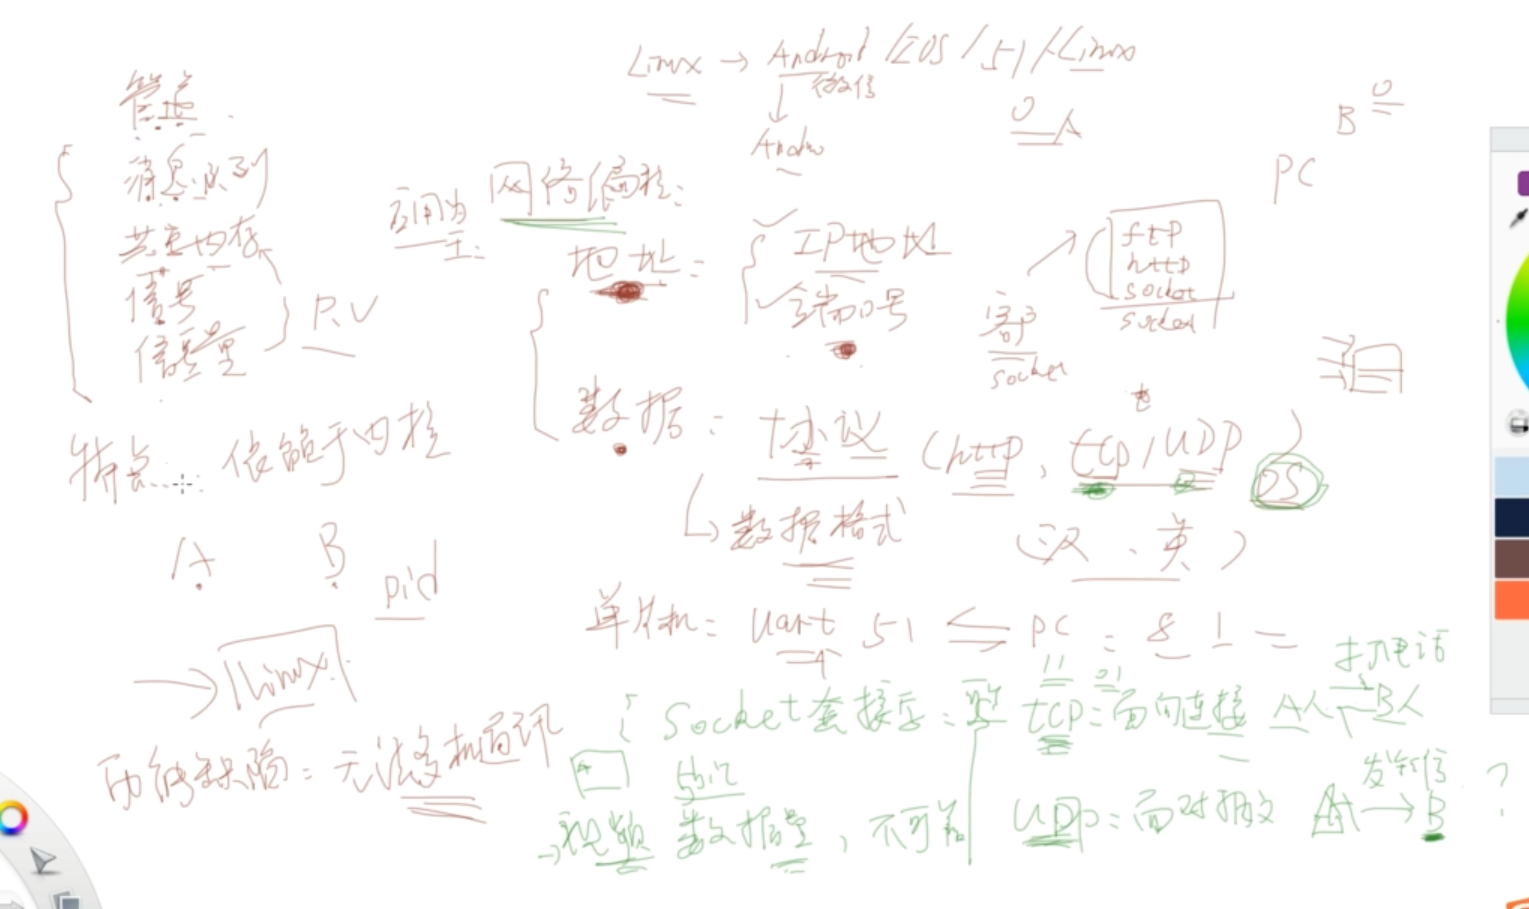 Linux → Android / IOS / 51 / Linux
微信
Andro
A
B
PC
管道
消息队列
共享内存
信号
信号量
P.V
特点: 依赖于内核
A B
pid
→ Linux
功能缺陷: 无法多机通讯
网络编程:
地址:
IP地址
端口号
ftp
http
socket
socket
客户
socket
数据: 协议 (http, tcp/UDP)
数据格式
(汉、英)
单片机: Uart 51 PC : 8 1
Socket套接字:
tcp: 面向连接 A B
打电话
视频 数据量, 不可靠
UDP: 面对报文 A → B
发短信
?